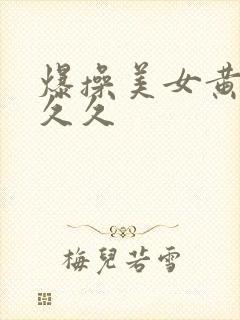 爆操美女黄
久久
梅兒若雪